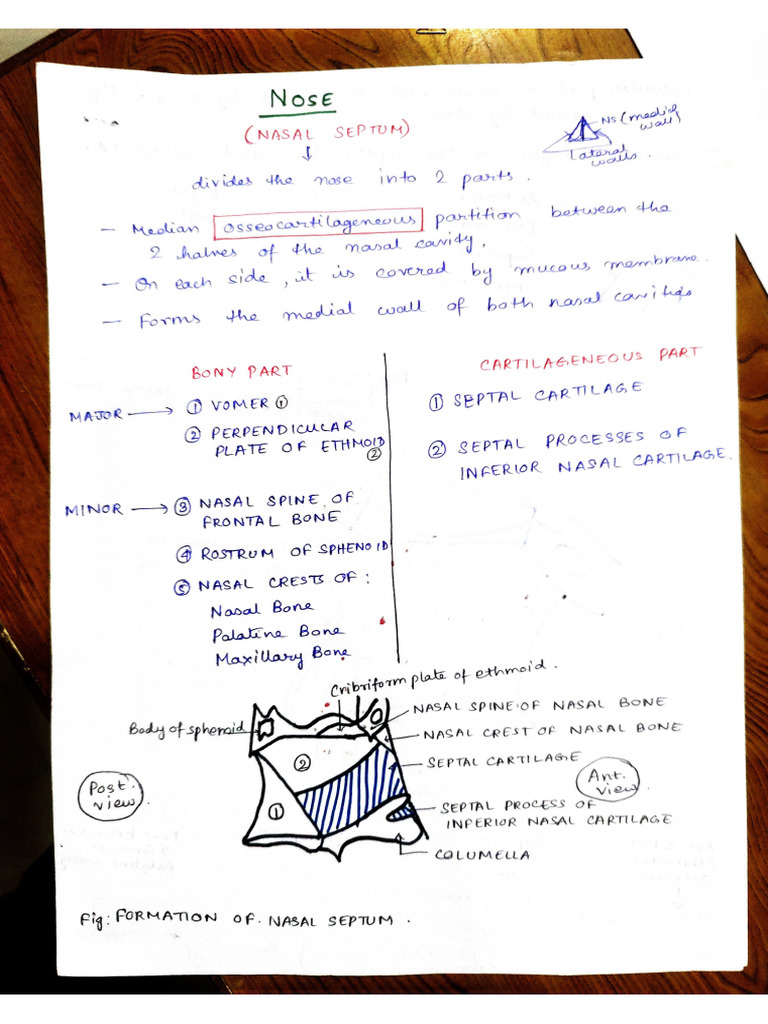 NOSE
(NASAL SEPTUM)
NS (medial
wall)
Lateral
walls.
divides the nose into 2 parts.
- Median osseocartilageneous partition between the
2 halves of the nasal cavity.
- On each side, it is covered by mucous membrane.
- Forms the medial wall of both nasal cavities
BONY PART
MAJOR → ① VOMER ①
② PERPENDICULAR
PLATE OF ETHMOID
②
MINOR → ③ NASAL SPINE OF
FRONTAL BONE
④ ROSTRUM OF SPHENOID
⑤ NASAL CRESTS OF:
Nasal Bone
Palatine Bone
Maxillary Bone
CARTILAGENEOUS PART
① SEPTAL CARTILAGE
② SEPTAL PROCESSES OF
INFERIOR NASAL CARTILAGE.
Cribriform plate of ethmoid.
Body of sphenoid
NASAL SPINE OF NASAL BONE
NASAL CREST OF NASAL BONE
SEPTAL CARTILAGE
②
Post.
view.
Ant.
view.
①
SEPTAL PROCESS OF
INFERIOR NASAL CARTILAGE
COLUMELLA
Fig: FORMATION OF NASAL SEPTUM.